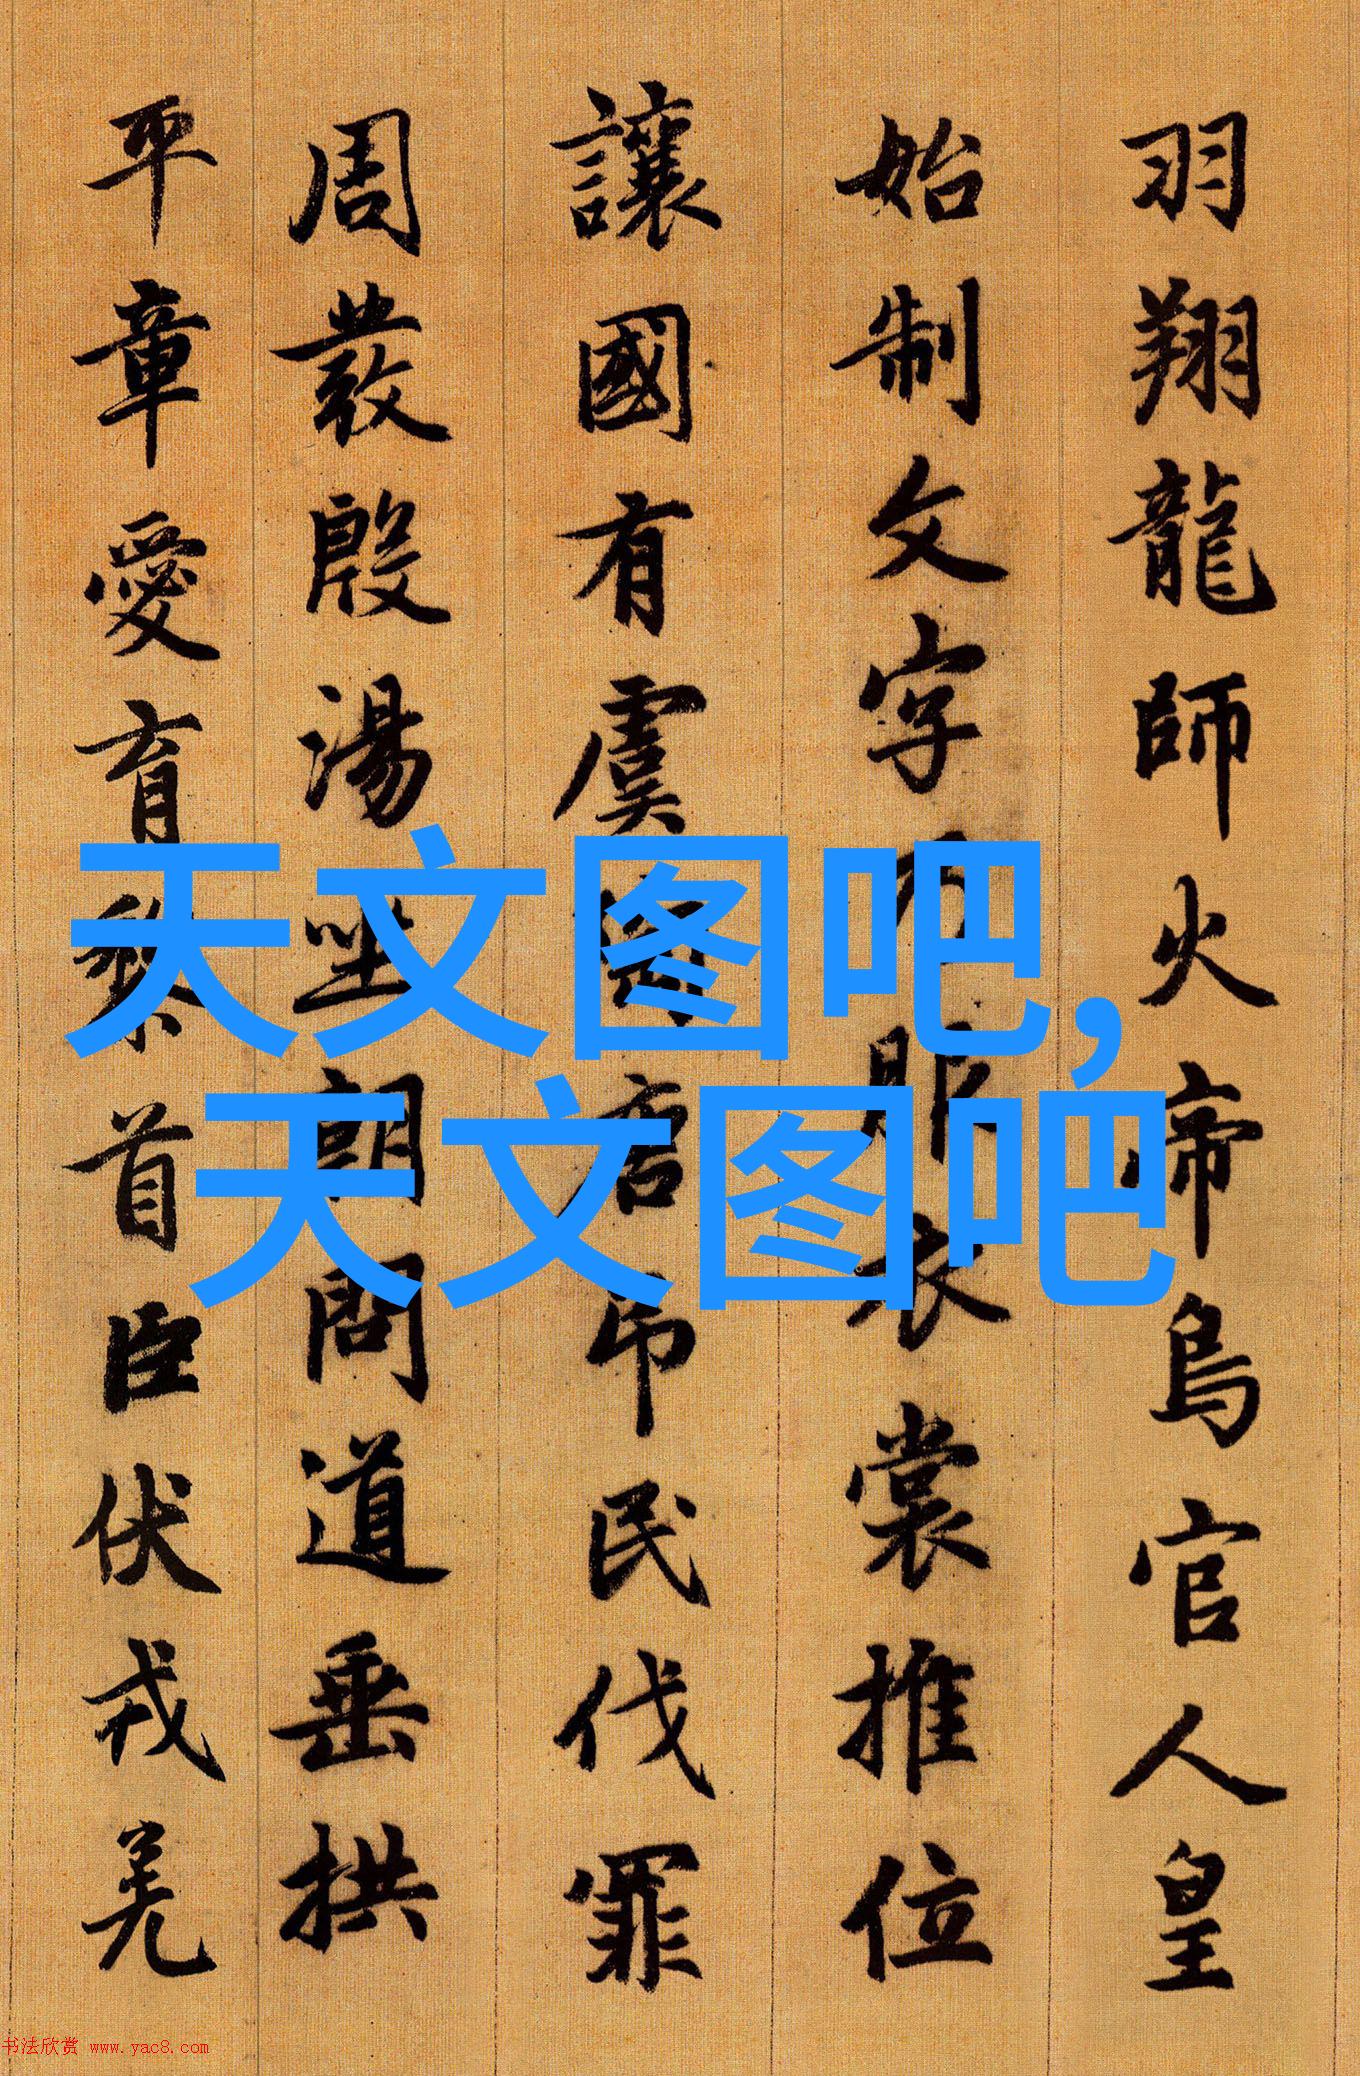 羽翔龍師火帝鳥官人皇
始制文字服衣裳推位
讓國有虞唐吊民伐罪
周發殷湯坐朝問道垂拱
平章愛育黎首臣伏戎羌
天文图吧,
天文图吧
书法欣赏 www.yac8.com